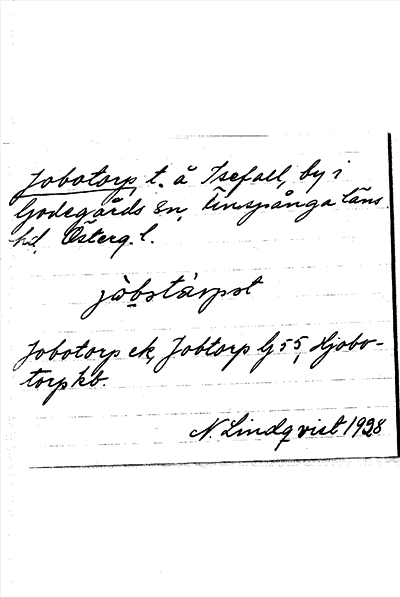 Jobotorp, t. å Isefall, by i
Godegårds sn, Finspånga läns
hd, Österg. l.
jòbstàrpst
Jobotorp ek, Jobtorp G 55, Hjobo-
torp kb.
N. Lindqvist 1928